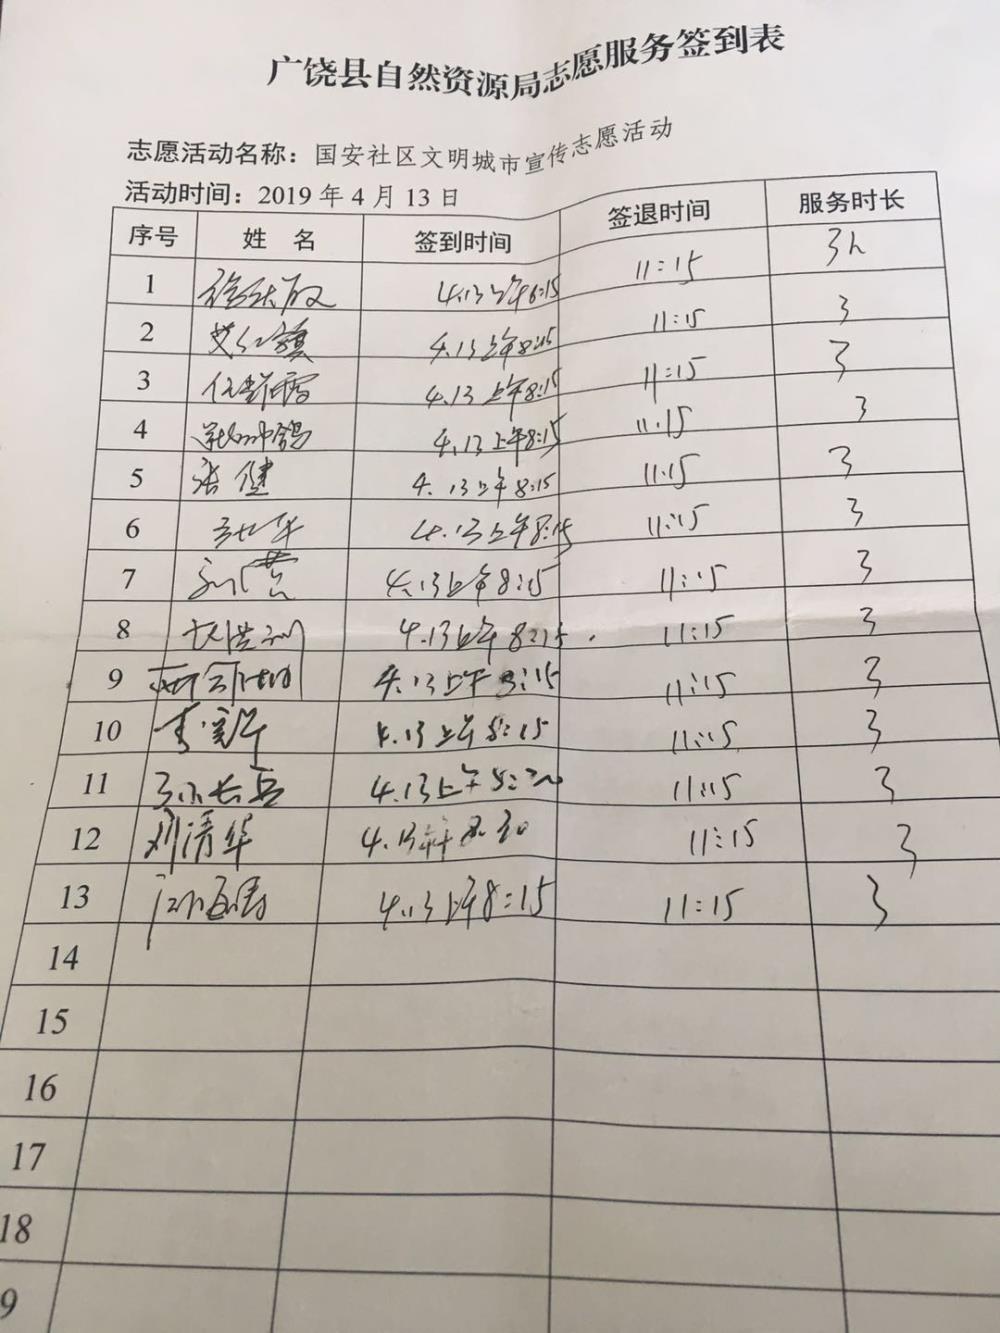 广饶县自然资源局志愿服务签到表
志愿活动名称：国安社区文明城市宣传志愿活动
活动时间：2019 年 4 月 13 日
序号 姓 名 签到时间 签退时间 服务时长
1 4.13上午8:15 11:15 3h
2 艾红旗 4.13上午8:15 11:15 3
3 4.13上午8:15 11:15 3
4 4.13上午8:15 11:15 3
5 张健 4.13上午8:15 11:15 3
6 4.13上午8:15 11:15 3
7 4.13上午8:15 11:15 3
8 4.13上午8:15 11:15 3
9 4.13上午8:15 11:15 3
10 4.13上午8:15 11:15 3
11 孙长兵 4.13上午8:20 11:15 3
12 刘清华 4.13 11:15 3
13 4.13上午8:15 11:15 3
14
15
16
17
18
9